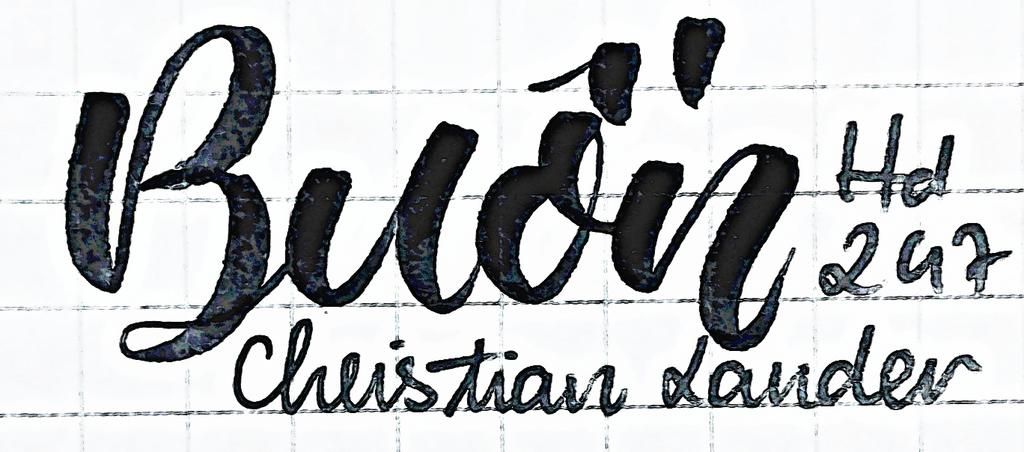 Buồn
Hd
247
Christian Lander